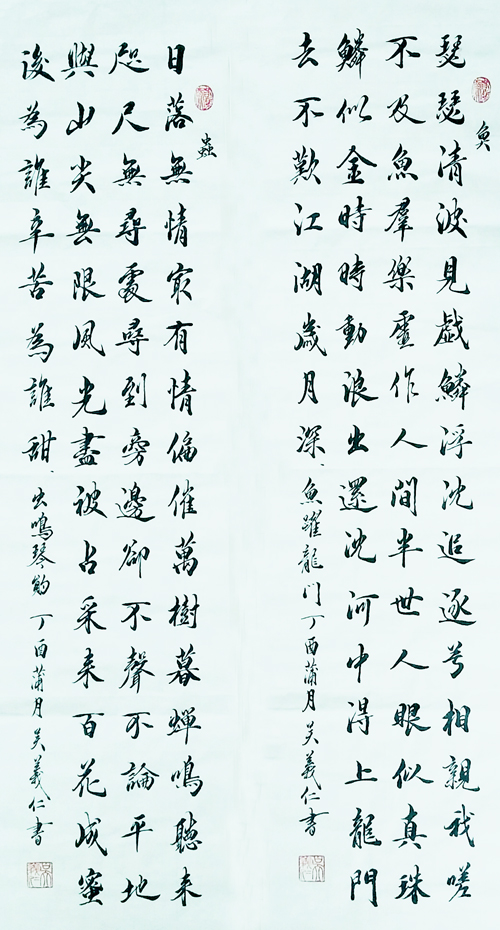 魚
瑟瑟清波見戲鱗浮沈追逐兮相親我嗟
不及魚羣樂虛作人間半世人眼似真珠
鱗似金時時動浪出還沈河中得上龍門
去不歎江湖歲月深、魚躍龍門丁酉蒲月吳義仁書
蟲
日落無情最有情偏催萬樹暮蟬鳴聽來
咫尺無尋處尋到旁邊卻不聲不論平地
與山尖無限風光盡被占采來百花成蜜
後為誰辛苦為誰甜、虫鳴琴韵丁酉蒲月吳義仁書